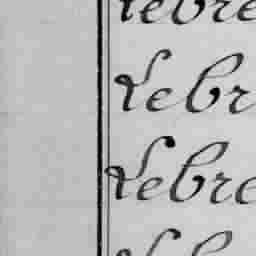 Lebre
Lebr
Lebre